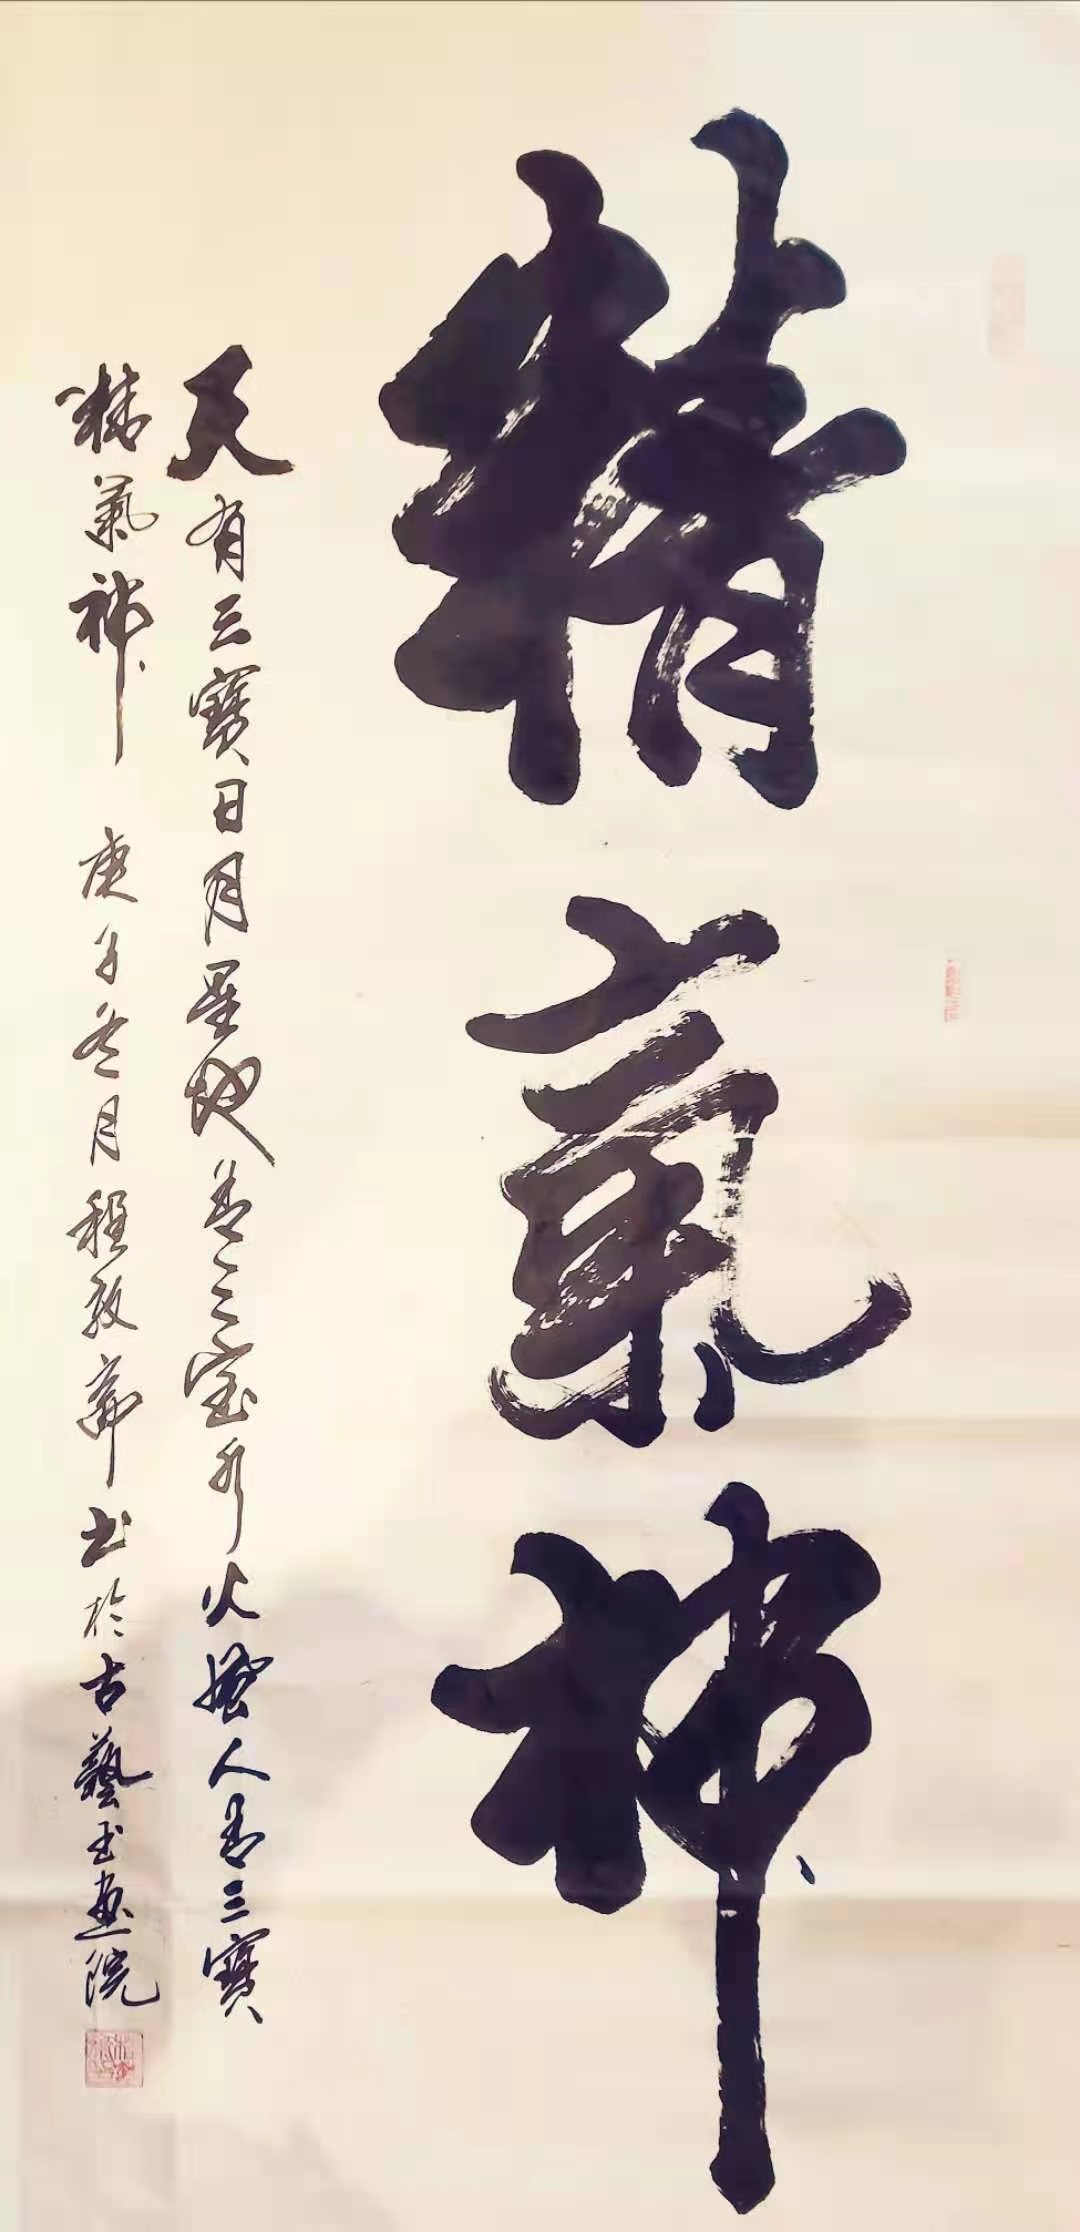 精氣神
天有三寶日月星地有三宝水火風人有三寶
精氣神 庚子冬月程致華书於古藝书画院